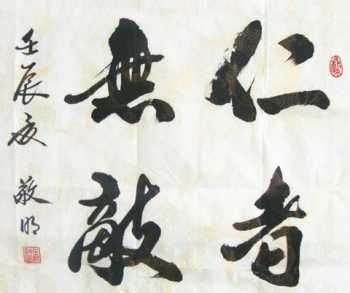 仁者
無敵
壬辰夏 敬明